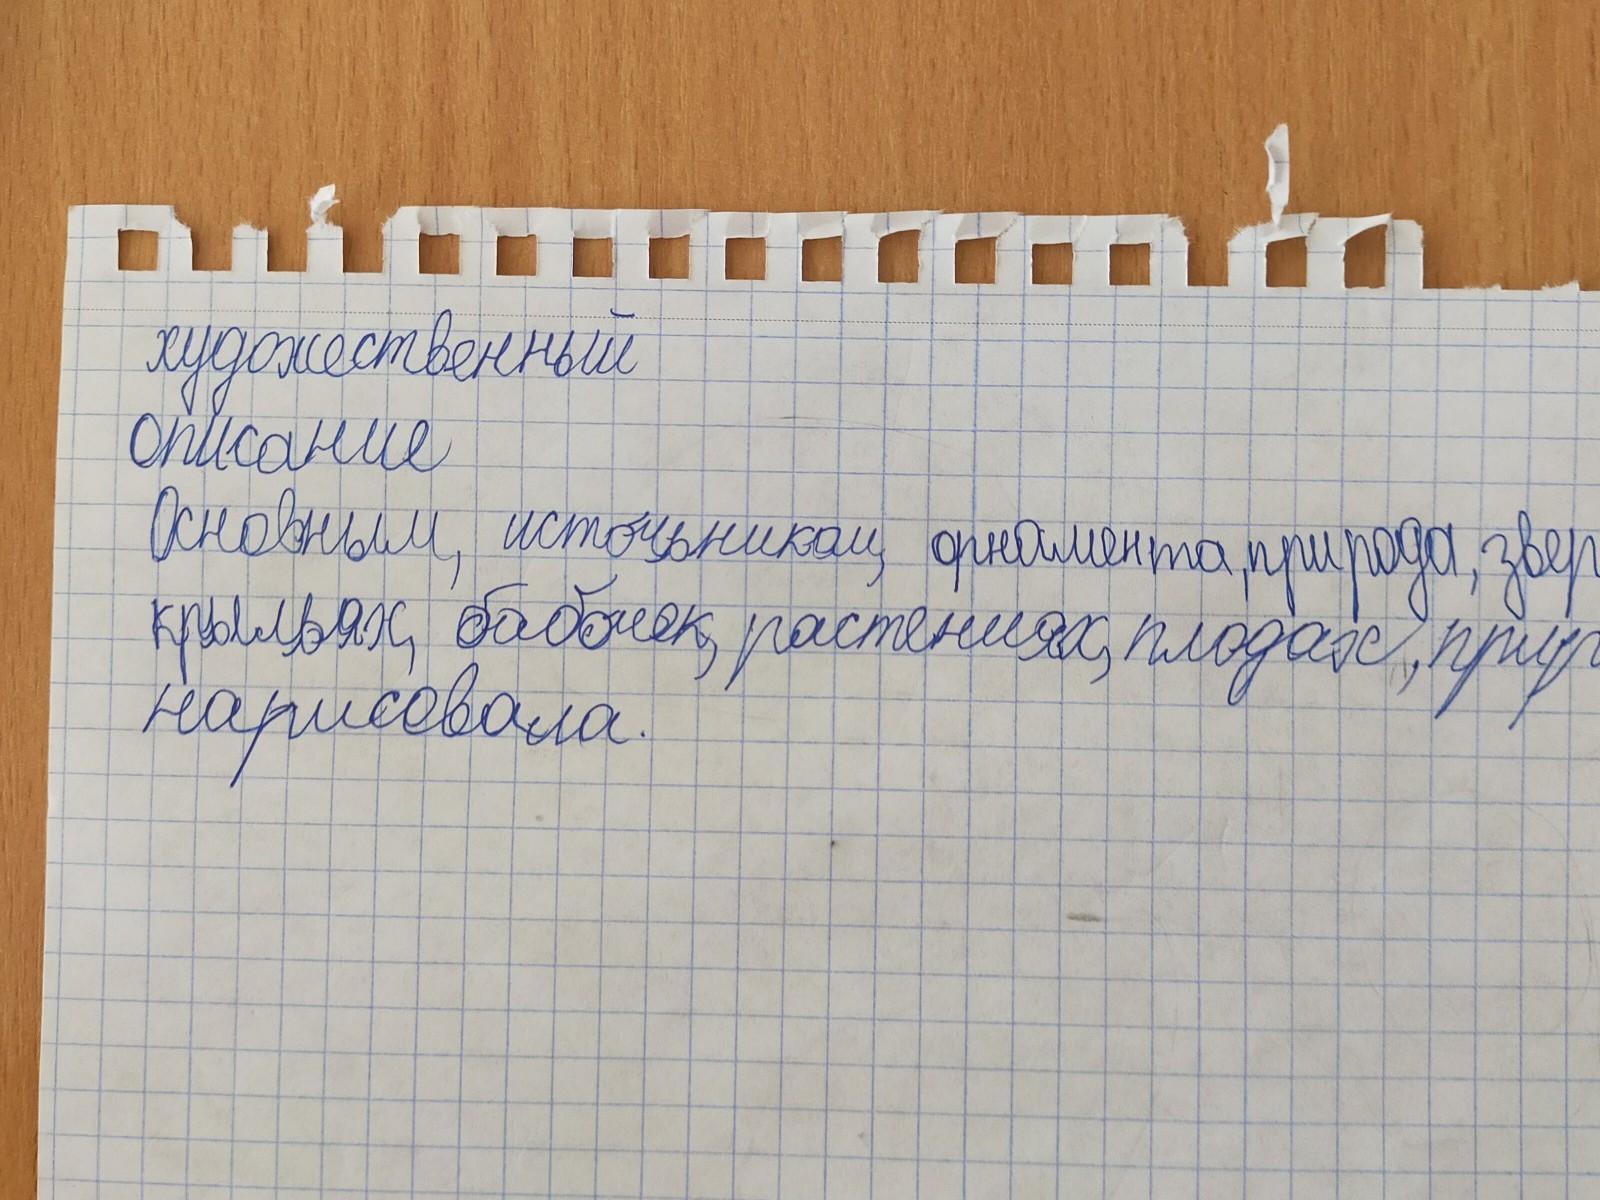 художественный
описание
Основным, источьникам, орнамента, природа, звер
крыльях, бабочек, растениях, плодах, прир
нарисовала.